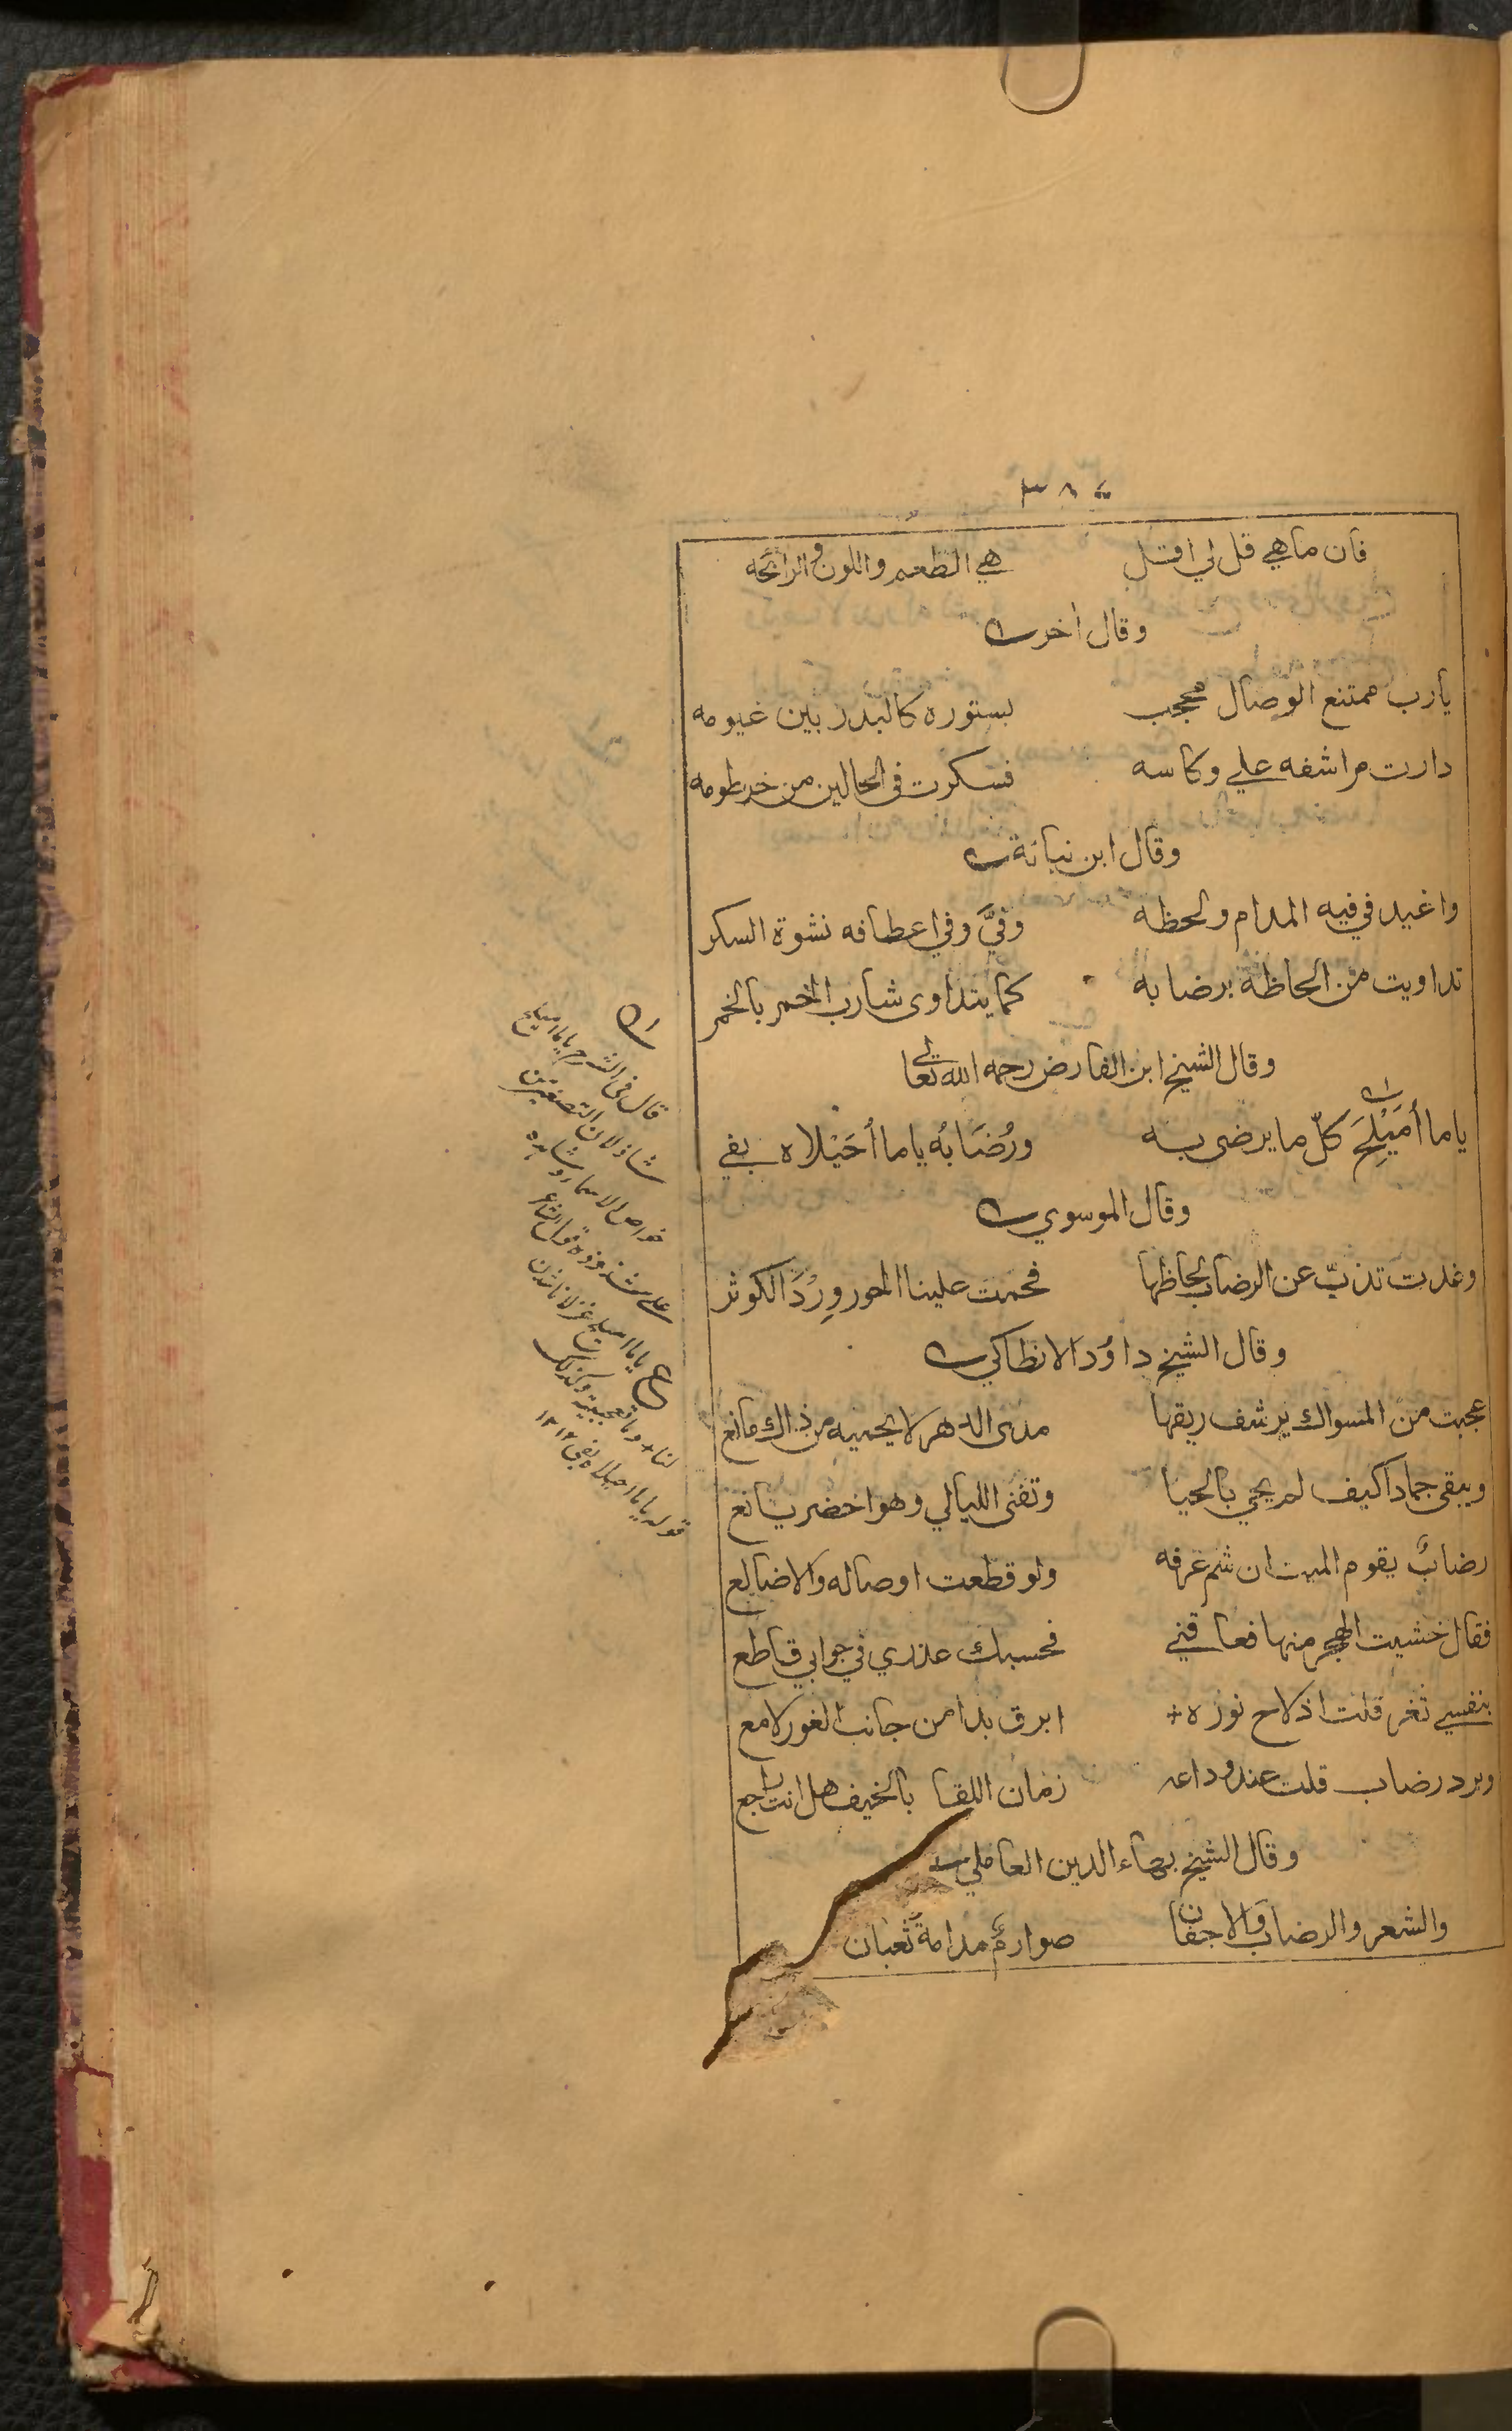 ٣٨٤
فان ماهي قل لي اقتل هي الطعم واللون والرائحه
وقال اخر
يارب ممتنع الوصال محجب بستوره كالبدر بين غيومه
دارت مراشفه علي وكاسه فسكرت في الحالين من خرطومه
وقال ابن نباتة
واغيد في فيه المدام ولحظه وفيَّ وفي اعطافه نشوة السكر
تداويت من الحاظه برضابه كما يتداوى شارب الخمر بالخمر
وقال الشيخ ابن الفارض رحمه الله تعالى
ياما أُمَيْلِحَ كلّ ما يرضى به ورُضَابُه ياما أُحَيْلاه بفي
وقال الموسوي
وغدت تذبّ عن الرضاب لحاظها فحمت علينا الحور وِرْدَ الكوثر
وقال الشيخ داوُد الانطاكي
عجبت من المسواك يرشف ريقها مدى الدهر لا يحييه من ذاك مانع
ويبقى جمادا كيف لم يحي بالحيا وتفنى الليالي وهو اخضر يانع
رضابٌ يقوم الميت ان شم عرفه ولو قطعت اوصاله والاضالع
فقال خشيت الهجر منها فعاقني فحسبك عذري في جوابي قاطع
بنفسي ثغر قلت اذ لاح نوره ابرق بدا من جانب الغور لامع
وبرد رضاب قلت عند وداعه زمان اللقا بالخيف هل انت راجع
وقال الشيخ بهاء الدين العاملي
والشعر والرضاب والاجفان صوارمٌ مدامةٌ ثعبان
قال في الشرح ياما اميلح
شاذ لان التصغير من
خواص الاسماء وشاهده
على شذوذه قول الشاعر
ع ياما اميلح غزلانا شدن
لنا + وما تعجبية وكذلك
قوله ياما احيلاه بفي ١٢١٢